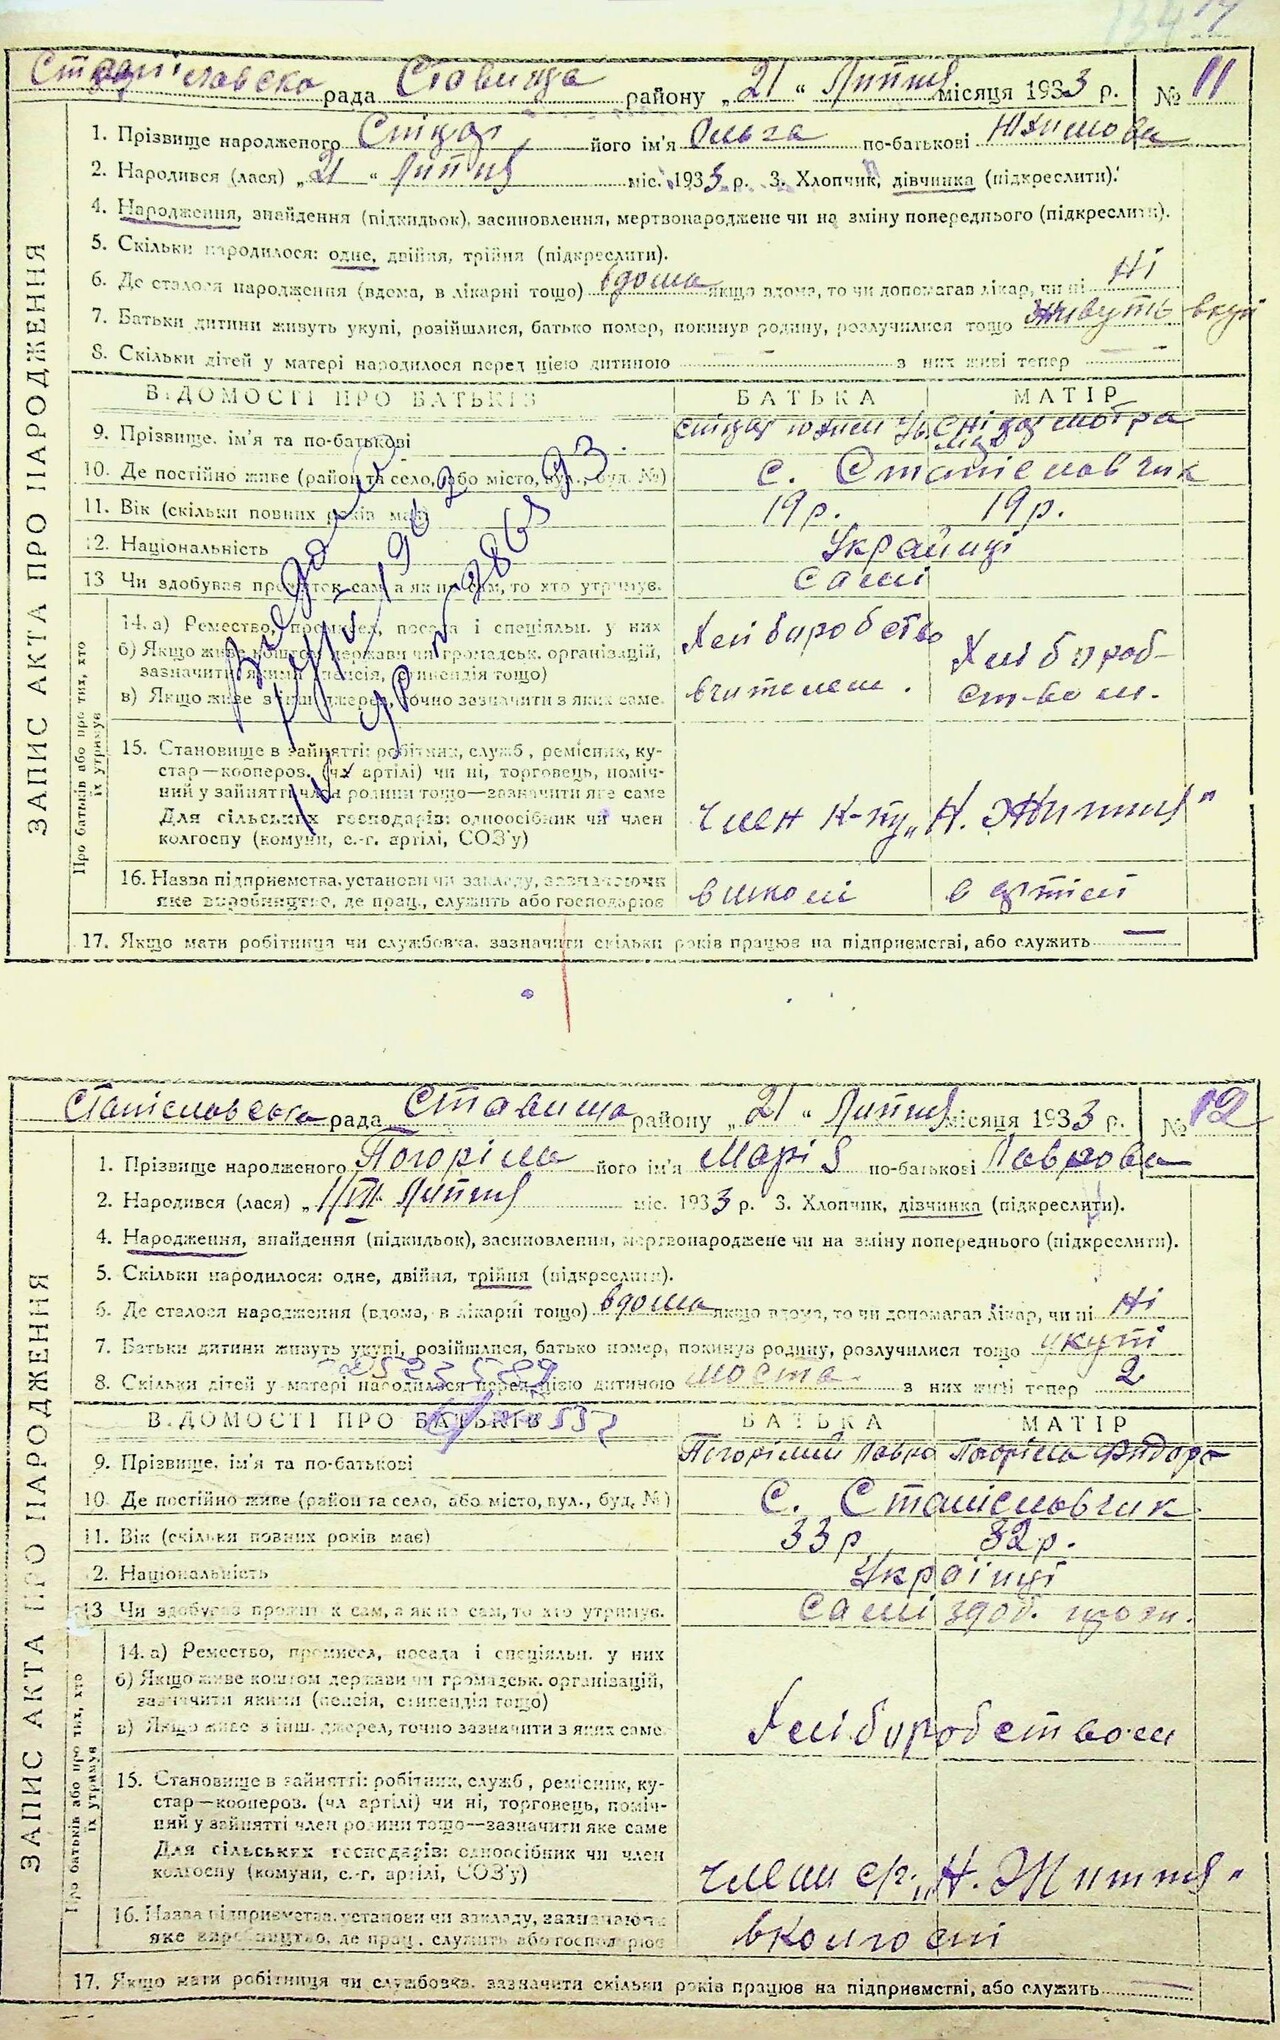 134
Станіславська рада Ставища району „21“ Липня місяця 1933 р. № 11
ЗАПИС АКТА ПРО НАРОДЖЕННЯ
1. Прізвище народженого його ім'я Ольга по-батькові Юхимова
2. Народився (лася) „21“ Липня міс. 1933 р. 3. Хлопчик, дівчинка (підкреслити).
4. Народження, знайдення (підкидьок), засиновлення, мертвонароджене чи на зміну попереднього (підкреслити).
5. Скільки народилося: одне, двійня, трійня (підкреслити).
6. Де сталося народження (вдома, в лікарні тощо) вдома якщо вдома, то чи допомагав лікар, чи ні Ні
7. Батьки дитини живуть укупі, розійшлися, батько помер, покинув родину, розлучилися тощо живуть вкупі
8. Скільки дітей у матері народилося перед цією дитиною — з них живі тепер —
ВІДОМОСТІ ПРО БАТЬКІВ БАТЬКА МАТІР
9. Прізвище, ім'я та по-батькові
10. Де постійно живе (район та село, або місто, вул., буд. №) с. Станіславчик
11. Вік (скільки повних років має) 19 р. 19 р.
12. Національність Українці
13 Чи здобував прожиток сам, а як не сам, то хто утримує. Самі
Про батьків або про тих, хто їх утримує
14. а) Ремество, промисел, посада і спеціяльн. у них
б) Якщо живе коштом держави чи громадськ. організацій,
зазначити якими (пенсія, стипендія тощо)
в) Якщо живе з інш. джерел, точно зазначити з яких саме.
Хліборобство
вчителем.
Хлібороб-
ством.
15. Становище в зайнятті: робітник, служб, ремісник, ку-
стар—кооперов. (чл артілі) чи ні, торговець, поміч-
ний у зайнятті член родини тощо—зазначити яке саме
Для сільських господарів: одноосібник чи член
колгоспу (комуни, с.-г. артілі, СОЗ'у)
член к-пу „Н. Життя“
16. Назва підприємства, установи чи закладу, зазначаючи
яке виробництво, де прац., служить або господарює
в школі в артілі
17. Якщо мати робітниця чи службовка, зазначити скільки років працює на підприємстві, або служить —
Станіславська рада Ставища району „21“ Липня місяця 1933 р. № 12
ЗАПИС АКТА ПРО НАРОДЖЕННЯ
1. Прізвище народженого Погоріла його ім'я Марія по-батькові Лаврова
2. Народився (лася) „ Липня міс. 1933 р. 3. Хлопчик, дівчинка (підкреслити).
4. Народження, знайдення (підкидьок), засиновлення, мертвонароджене чи на зміну попереднього (підкреслити).
5. Скільки народилося: одне, двійня, трійня (підкреслити).
6. Де сталося народження (вдома, в лікарні тощо) вдома якщо вдома, то чи допомагав лікар, чи ні Ні
7. Батьки дитини живуть укупі, розійшлися, батько помер, покинув родину, розлучилися тощо укупі
8. Скільки дітей у матері народилося перед цією дитиною шоста з них живі тепер 2
ВІДОМОСТІ ПРО БАТЬКІВ БАТЬКА МАТІР
9. Прізвище, ім'я та по-батькові Погорілий Лавро Погоріла Фидора
10. Де постійно живе (район та село, або місто, вул., буд. №) С. Станіславчик
11. Вік (скільки повних років має) 33 р 32 р.
12. Національність Українці
13 Чи здобував прожиток сам, а як не сам, то хто утримує. Самі здоб. прож.
Про батьків або про тих, хто їх утримує
14. а) Ремество, промисел, посада і спеціяльн. у них
б) Якщо живе коштом держави чи громадськ. організацій,
зазначити якими (пенсія, стипендія тощо)
в) Якщо живе з інш. джерел, точно зазначити з яких саме
Хліборобством
15. Становище в зайнятті: робітник, служб, ремісник, ку-
стар—кооперов. (чл артілі) чи ні, торговець, поміч-
ний у зайнятті член родини тощо—зазначити яке саме
Для сільських господарів: одноосібник чи член
колгоспу (комуни, с.-г. артілі, СОЗ'у)
члени „Н. Життя“
16. Назва підприємства, установи чи закладу, зазначаючи
яке виробництво, де прац., служить або господарює
в колгоспі
17. Якщо мати робітниця чи службовка, зазначити скільки років працює на підприємстві, або служить —